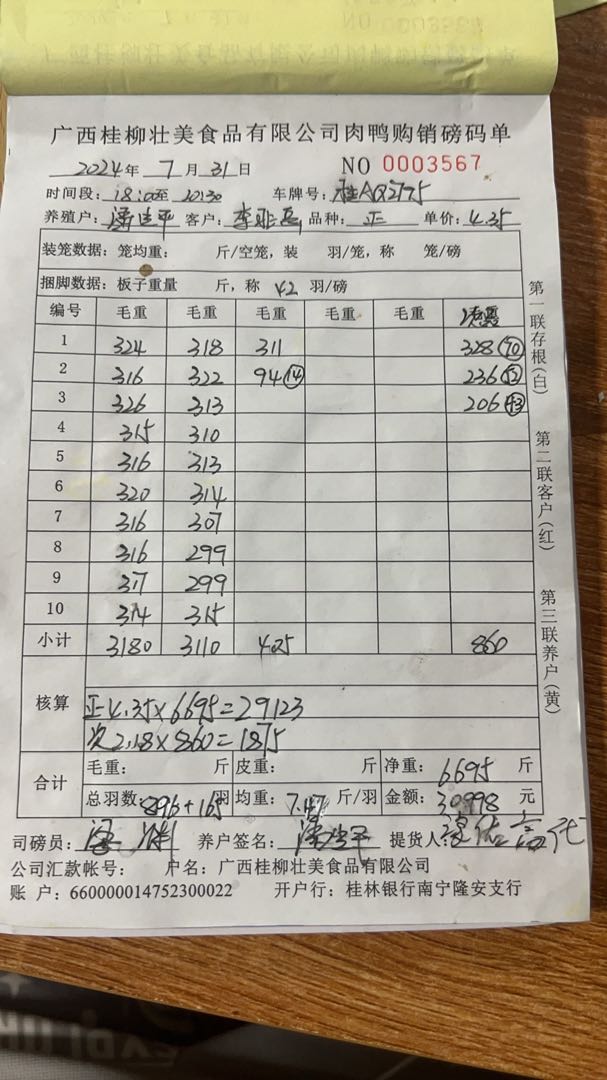 广西桂柳壮美食品有限公司肉鸭购销磅码单
2024年 7 月 31 日 NO 0003567
时间段: 18:00至 20:30 车牌号: 桂AQ2775
养殖户: 平 客户: 李 品种: 正 单价: 4.35
装笼数据: 笼均重: 斤/空笼, 装 羽/笼, 称 笼/磅
捆脚数据: 板子重量 斤, 称 42 羽/磅
编号 毛重 毛重 毛重 毛重 毛重
1 324 318 311 328 70
2 316 322 94 14 236 52
3 326 313 206 43
4 315 310
5 316 313
6 320 314
7 316 307
8 316 299
9 317 299
10 314 315
小计 3180 3110 405 860
核算
正4.35×6695=29123
次2.18×860=1875
合计 毛重: 斤 皮重: 斤 净重: 6695 斤
总羽数: 896+165 羽 均重: 7.47 斤/羽 金额: 30998 元
司磅员: 养户签名: 提货人:
公司汇款帐号: 户名: 广西桂柳壮美食品有限公司
账 户: 660000014752300022 开户行: 桂林银行南宁隆安支行
第一联存根(白)
第二联客户(红)
第三联养户(黄)